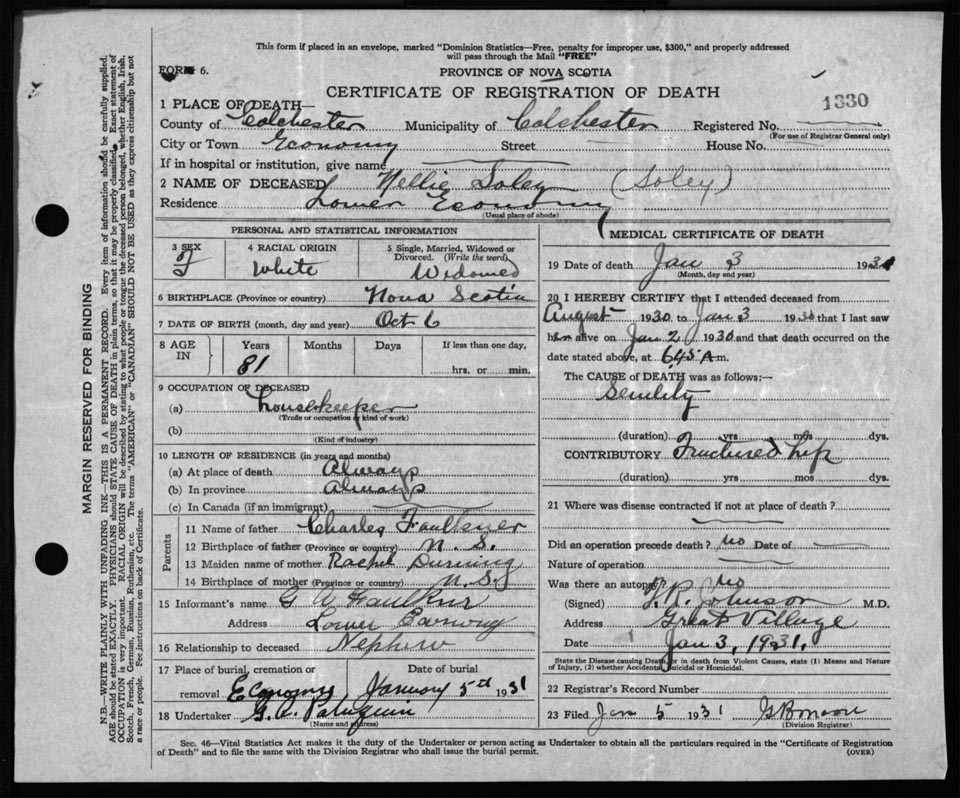 This form if placed in an envelope, marked "Dominion Statistics—Free, penalty for improper use, $300," and properly addressed
will pass through the Mail "FREE"
FORM 6.
PROVINCE OF NOVA SCOTIA
CERTIFICATE OF REGISTRATION OF DEATH
1330
1 PLACE OF DEATH—
County of Colchester Municipality of Colchester Registered No.
(For use of Registrar General only)
City or Town Economy Street House No.
If in hospital or institution, give name
2 NAME OF DECEASED Nellie Soley (Soley)
Residence Lower Economy
(Usual place of abode)
PERSONAL AND STATISTICAL INFORMATION
3 SEX
F
4 RACIAL ORIGIN
White
5 Single, Married, Widowed or
Divorced. (Write the word)
Widowed
6 BIRTHPLACE (Province or country) Nova Scotia
7 DATE OF BIRTH (month, day and year) Oct 6
8 AGE
IN
Years Months Days If less than one day,
81
hrs. or min.
9 OCCUPATION OF DECEASED
(a) housekeeper
(Trade or occupation or kind of work)
(b)
(Kind of industry)
10 LENGTH OF RESIDENCE (in years and months)
(a) At place of death Always
(b) In province Always
(c) In Canada (if an immigrant)
Parents
11 Name of father Charles Faulkner
12 Birthplace of father (Province or country) N. S.
13 Maiden name of mother Rachel Durning
14 Birthplace of mother (Province or country) N. S.
15 Informant's name G A Faulkner
Address Lower Economy
16 Relationship to deceased Nephew
17 Place of burial, cremation or Date of burial
removal Economy January 5th 1931
18 Undertaker G. A.
(Name and address)
MEDICAL CERTIFICATE OF DEATH
19 Date of death Jan 3 1931
(Month, day and year)
20 I HEREBY CERTIFY that I attended deceased from
August 1930 to Jan 3 1930 that I last saw
alive on Jan 2 1930 and that death occurred on the
date stated above, at 645 A m.
The CAUSE of DEATH was as follows:—
Senility
(duration) yrs mos dys.
CONTRIBUTORY Fractured hip
(duration) yrs mos dys.
21 Where was disease contracted if not at place of death?
Did an operation precede death? no Date of
Nature of operation
Was there an autopsy no
(Signed) Johnson M.D.
Address Great Village
Date Jan 3, 1931.
State the Disease causing Death, or in death from Violent Causes, state (1) Means and Nature
of Injury, (2) whether Accidental, Suicidal or Homicidal.
22 Registrar's Record Number
23 Filed Jan 5 1931
(Division Registrar)
Sec. 46—Vital Statistics Act makes it the duty of the Undertaker or person acting as Undertaker to obtain all the particulars required in the "Certificate of Registration
of Death" and to file the same with the Division Registrar who shall issue the burial permit. (OVER)
MARGIN RESERVED FOR BINDING
N.B.—WRITE PLAINLY WITH UNFADING INK—THIS IS A PERMANENT RECORD. Every item of information should be carefully supplied.
AGE should be stated EXACTLY. PHYSICIANS should STATE CAUSE OF DEATH in plain terms, so that it may be properly classified. Exact statement of
OCCUPATION is very important. RACIAL ORIGIN will be described by stating to what people or tongue the deceased person belonged, whether English, Irish,
Scotch, French, German, Russian, Ruthenian, etc. The terms "AMERICAN" or "CANADIAN" SHOULD NOT BE USED as they express citizenship but not
a race or people. See instructions on back of Certificate.